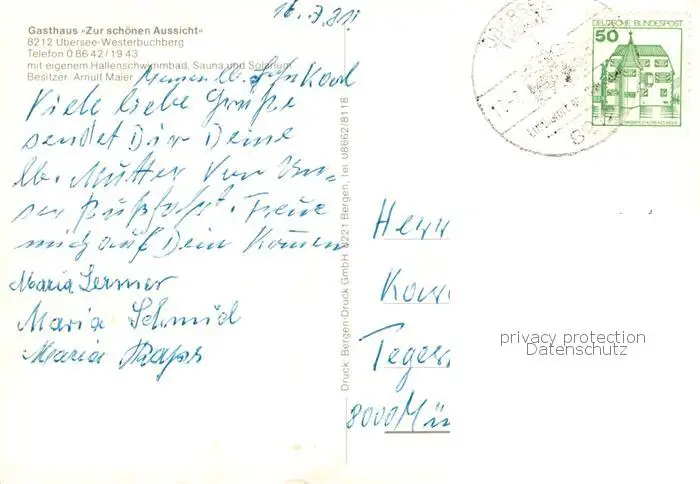 16.7.81
Gasthaus »Zur schönen Aussicht«
8212 Übersee-Westerbuchberg
Telefon 0 86 42 / 19 43
mit eigenem Hallenschwimmbad, Sauna und Solarium
Besitzer Arnulf Maier
Meinen lb. Sohn
Viele liebe Grüße
sendet Dir Deine
lb. Mutter von Un-
ser Fußfahrt. Freue
mich auf Dein Kommen
Maria Lermer
Maria Schmid
Maria
Druck: Bergen-Druck GmbH, 8221 Bergen, Tel. 08662/8118
DEUTSCHE BUNDESPOST
50
Herr
Tegern
8000 Mün
privacy protection
Datenschutz